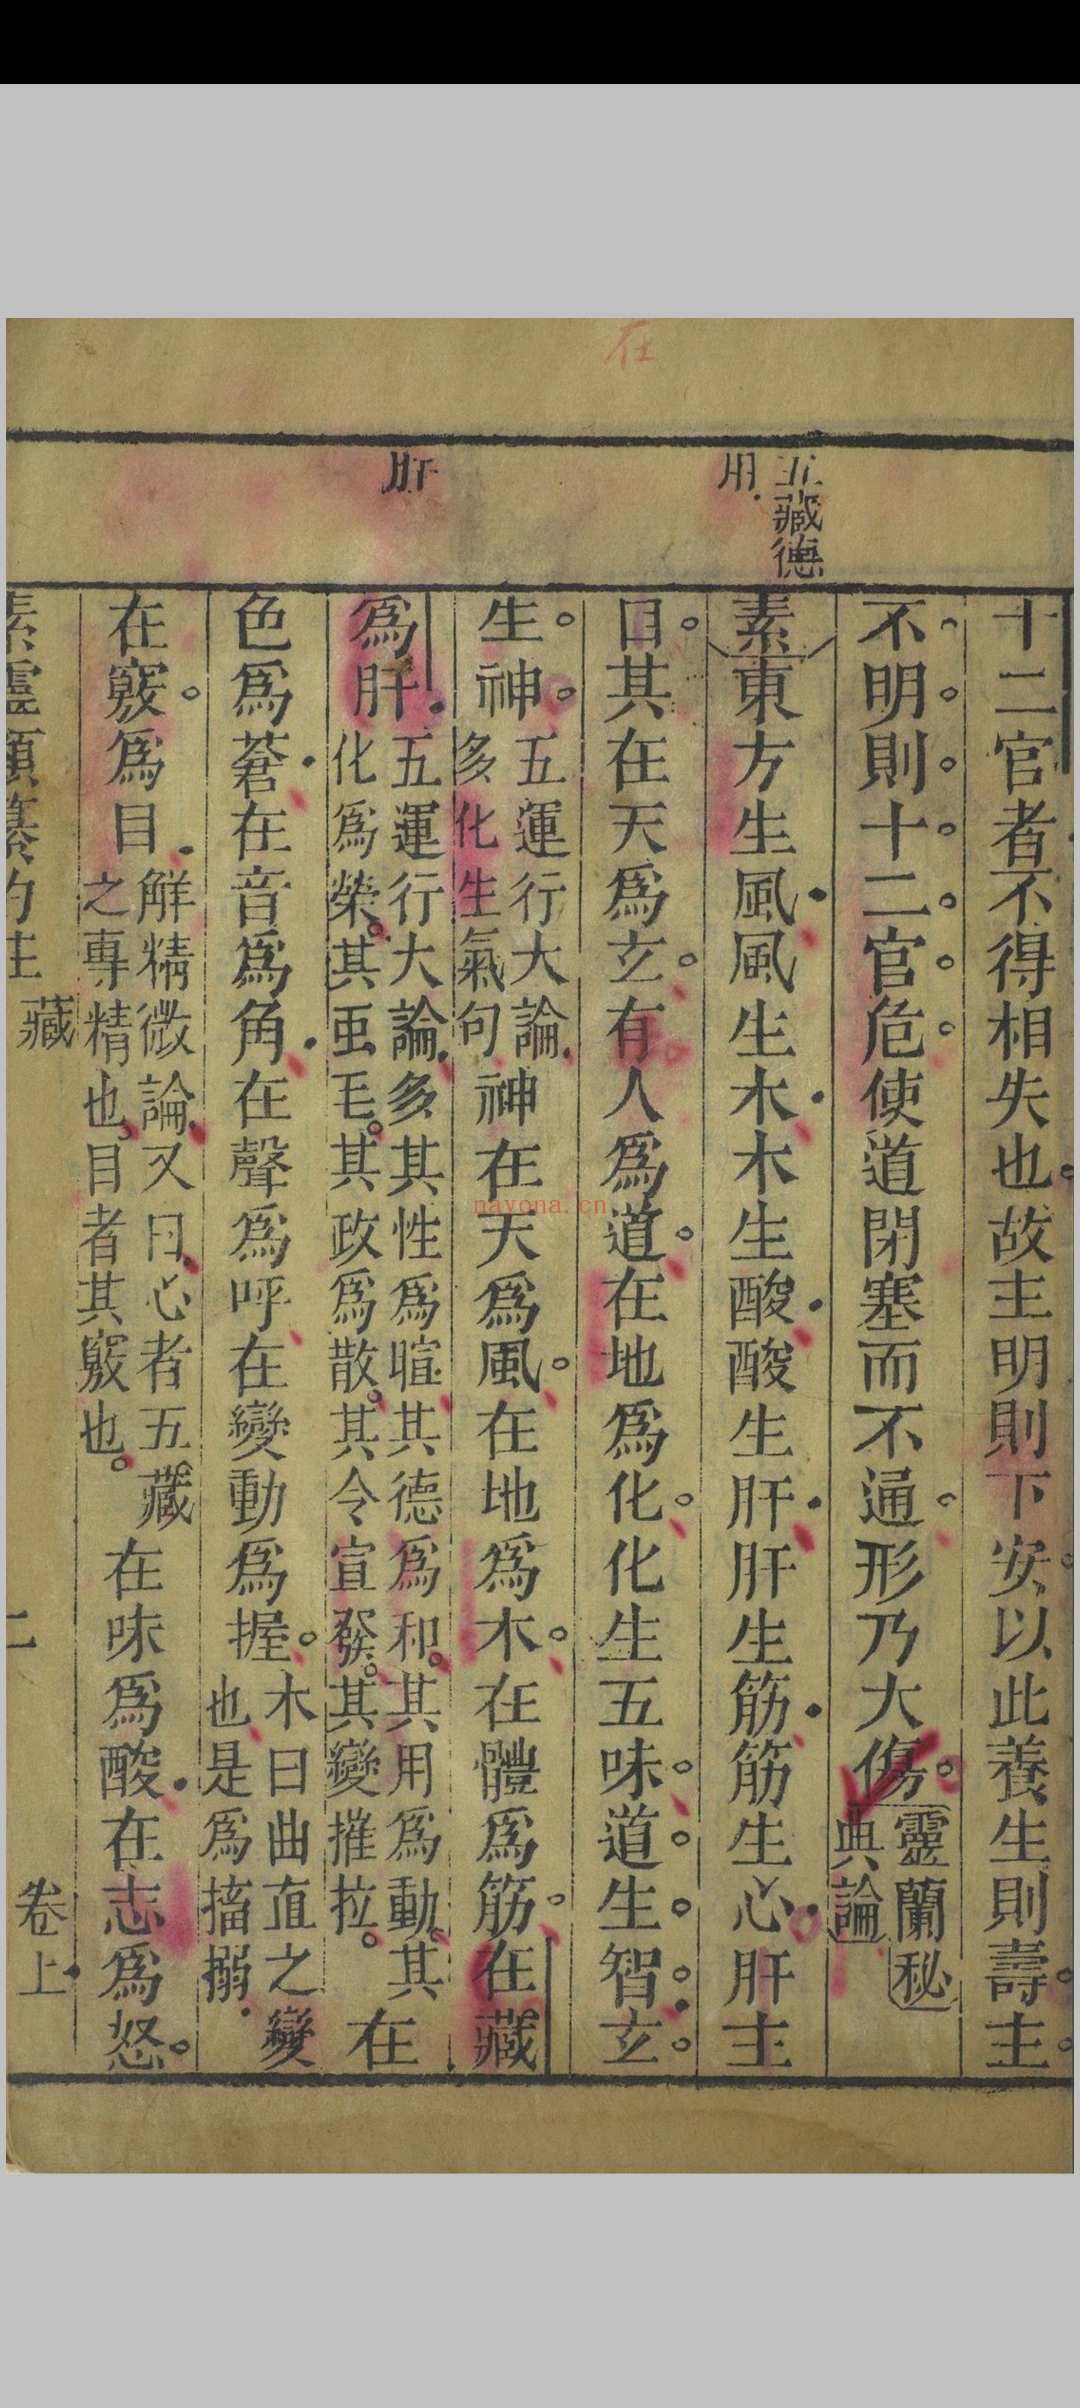 在
五藏德
用
肝
十二官者不得相失也故主明則下安以此養生則壽主
不明則十二官危使道閉塞而不通形乃大傷靈蘭秘
典論
素東方生風風生木木生酸酸生肝肝生筋筋生心肝主
目其在天爲玄有人爲道在地爲化化生五味道生智玄
生神五運行大論
多化生氣句
神在天爲風在地爲木在體爲筋在藏
爲肝五運行大論多其性爲暄其德爲和其用爲動其
化爲榮其虫毛其政爲散其令宣發其變摧拉
在
色爲蒼在音爲角在聲爲呼在變動爲握木曰曲直之變
也是爲搐搦
在竅爲目解精微論又曰心者五藏
之專精也目者其竅也
在味爲酸在志爲怒
素靈類纂約註 藏 二 卷上
nayona.cn